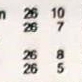 n 26 10
26 7
26 8
26 5